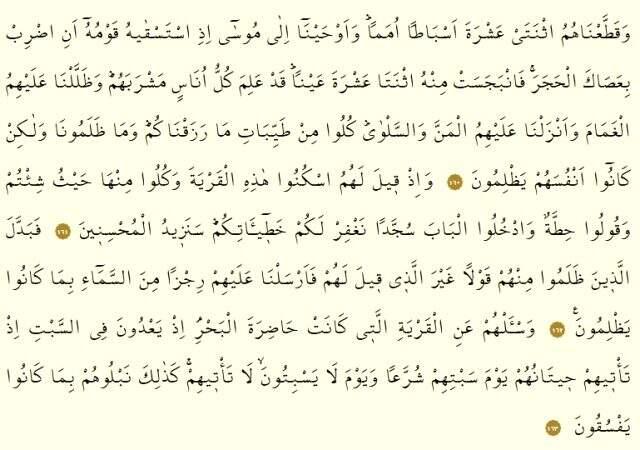 وَقَطَّعْنَاهُمُ اثْنَتَيْ عَشْرَةَ اَسْبَاطًا اُمَمًاۜ وَاَوْحَيْنَٓا اِلٰى مُوسٰٓى اِذِ اسْتَسْقٰيهُ قَوْمُهُٓ اَنِ اضْرِبْ
بِعَصَاكَ الْحَجَرَۚ فَانْبَجَسَتْ مِنْهُ اثْنَتَا عَشْرَةَ عَيْنًاۜ قَدْ عَلِمَ كُلُّ اُنَاسٍ مَشْرَبَهُمْۜ وَظَلَّلْنَا عَلَيْهِمُ
الْغَمَامَ وَاَنْزَلْنَا عَلَيْهِمُ الْمَنَّ وَالسَّلْوٰىۜ كُلُوا مِنْ طَيِّبَاتِ مَا رَزَقْنَاكُمْۜ وَمَا ظَلَمُونَا وَلٰكِنْ
كَانُٓوا اَنْفُسَهُمْ يَظْلِمُونَ ﴿١٦٠﴾ وَاِذْ ق۪يلَ لَهُمُ اسْكُنُوا هٰذِهِ الْقَرْيَةَ وَكُلُوا مِنْهَا حَيْثُ شِئْتُمْ
وَقُولُوا حِطَّةٌ وَادْخُلُوا الْبَابَ سُجَّدًا نَغْفِرْ لَكُمْ خَط۪ٓيـَٔاتِكُمْۜ سَنَز۪يدُ الْمُحْسِن۪ينَ ﴿١٦١﴾ فَبَدَّلَ
الَّذ۪ينَ ظَلَمُوا مِنْهُمْ قَوْلًا غَيْرَ الَّذ۪ي ق۪يلَ لَهُمْ فَاَرْسَلْنَا عَلَيْهِمْ رِجْزًا مِنَ السَّمَٓاءِ بِمَا كَانُوا
يَظْلِمُونَ۟ ﴿١٦٢﴾ وَسْـَٔلْهُمْ عَنِ الْقَرْيَةِ الَّت۪ي كَانَتْ حَاضِرَةَ الْبَحْرِۢ اِذْ يَعْدُونَ فِي السَّبْتِ اِذْ
تَأْت۪يهِمْ ح۪يتَانُهُمْ يَوْمَ سَبْتِهِمْ شُرَّعًا وَيَوْمَ لَا يَسْبِتُونَۙ لَا تَأْت۪يهِمْۚ كَذٰلِكَ نَبْلُوهُمْ بِمَا كَانُوا
يَفْسُقُونَ ﴿١٦٣﴾